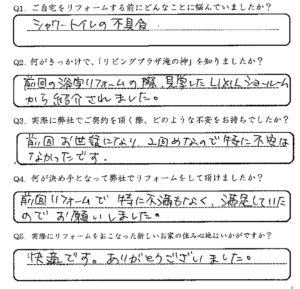 Q1. ご自宅をリフォームする前にどんなことに悩んでいましたか?
シャワートイレの不具合
Q2. 何がきっかけで、「リビングプラザ滝の神」を知りましたか?
前回の浴室リフォームの際、見学したLIXILショールーム
から紹介されました。
Q3. 実際に弊社でご契約を頂く際、どのような不安をお持ちでしたか?
前回お世話になり、2回めなので特に不安は
なかったです。
Q4. 何が決め手となって弊社でリフォームをして頂けましたか?
前回リフォームで特に不満もなく、満足していた
のでお願いしました。
Q5. 実際にリフォームをおこなった新しいお家の住み心地はいかがですか?
快適です。ありがとうございました。